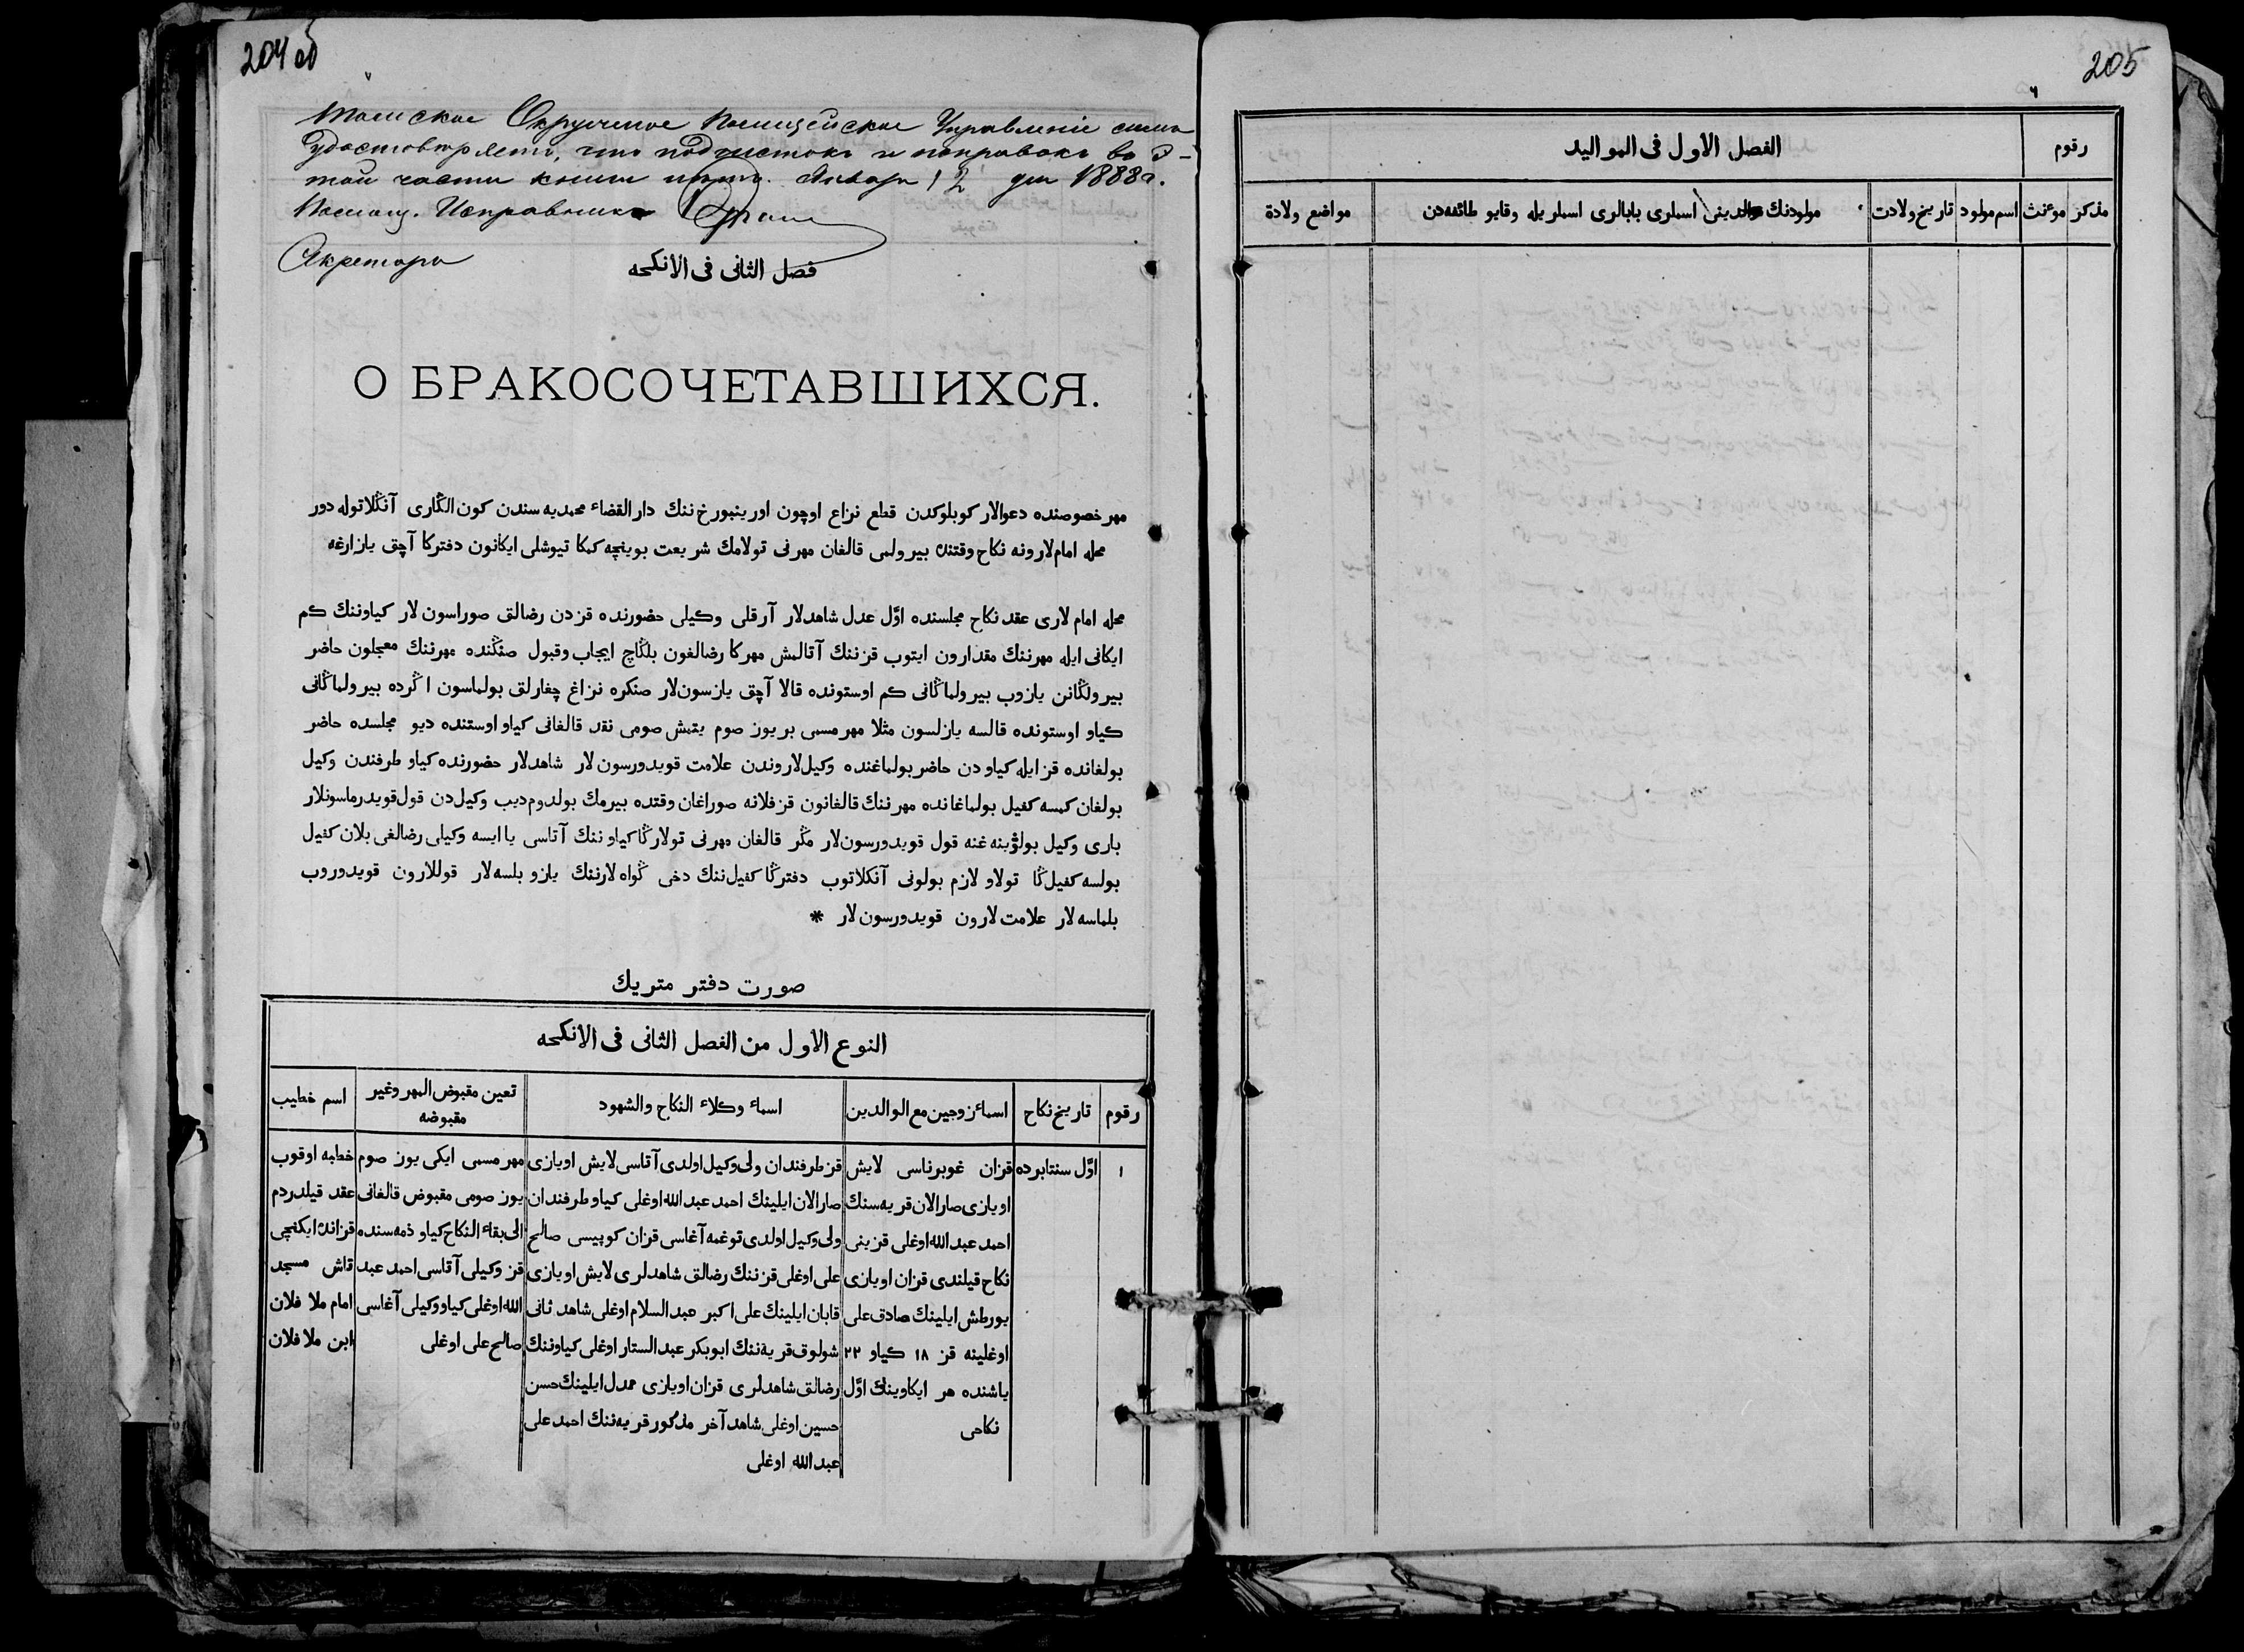 204 об
Томское Окружное Полицейское Управленіе симъ
удостоверяетъ, что подчистокъ и поправокъ въ э-
той части книги нѣтъ. Января 12 дня 1888 г.
Помощ. Исправника
Секретарь
فصل الثانی فی الانکحه
О БРАКОСОЧЕТАВШИХСЯ.
مهر خصوصنده دعوالار کوبلوکدن قطع نزاع اوچون اورینبورخ ننك دار القضاء محمدیه سندن کون الڭاری آنڭلاتوله دور
محله امام لارونه نکاح وقتنده بیرولمی قالغان مهرنی تولامك شریعت بوینچه کمکا تیوشلی ایکانون دفترکا آچق یازارغه
محله امام لاری عقد نکاح مجلسنده اوّل عدل شاهدلار آرقلی وکیلی حضورنده قزدن رضالق صوراسون لار کیاوننك کم
ایکانی ایله مهرننك مقدارون ایتوب قزننك آتالمش مهرکا رضالغون بلڭاچ ایجاب وقبول صڭنده مهرننك معجلون حاضر
بیرولڭانن یازوب بیرولماڭانی کم اوستونده قالا آچق یازسون لار صنکره نزاع چغارلق بولماسون اڭرده بیرولماڭانی
کیاو اوستونده قالسه یازلسون مثلا مهر مسمی بر یوز صوم یتمش صومی نقد قالغانی کیاو اوستنده دیو مجلسده حاضر
بولغانده قز ایله کیاودن حاضر بولماغنده وکیل لاروندن علامت قویدورسون لار شاهدلار حضورنده کیاو طرفندن وکیل
بولغان کمسه کفیل بولماغانده مهرننك قالغانون قز فلانه صوراغان وقتده بیرمك بولدوم دیب وکیل دن قول قویدرماسونلار
باری وکیل بولۇینه غنه قول قویدورسون لار مڭر قالغان مهرنی تولارڭا کیاوننك آتاسی یا ایسه وکیلی رضالغی بلان کفیل
بولسه کفیل ڭا تولاو لازم بولونی آنکلاتوب دفترڭا کفیل ننك دخی ڭواه لارننك یازو بلسه لار قوللارون قویدوروب
بلماسه لار علامت لارون قویدورسون لار *
صورت دفتر متریك
النوع الاول من الفصل الثانی فی الانکحه
رقوم
تاریخ نکاح
اسماء زوجین مع الوالدین
اسماء وکلاء النکاح والشهود
تعین مقبوض المهر وغیر
مقبوضه
اسم خطیب
١
اوّل سنتابرده
قزان غوبرناسی لایش
اویازی صارالان قریه سنك
احمد عبد الله اوغلی قزینی
نکاح قیلندی قزان اویازی
بورطش ایلینك صادق علی
اوغلینه قز ١٨ کیاو ٢٢
یاشنده هر ایکاوینك اوّل
نکاحی
قز طرفندان ولی وکیل اولدی آتاسی لایش اویازی
صارالان ایلینك احمد عبد الله اوغلی کیاو طرفندان
ولی وکیل اولدی توغمه آغاسی قزان کوپیسی صالح
علی اوغلی قزننك رضالق شاهدلری لایش اویازی
قابان ایلینك علی اکبر عبد السلام اوغلی شاهد ثانی
شولوق قریه ننك ابوبکر عبد الستار اوغلی کیاوننك
رضالق شاهدلری قزان اویازی ممدل ایلینك حسن
حسین اوغلی شاهد آخر مذکور قریه ننك احمد علی
عبد الله اوغلی
مهر مسمی ایکی یوز صوم
یوز صومی مقبوض قالغانی
الی بقاء النکاح کیاو ذمه سنده
قز وکیلی آتاسی احمد عبد
الله اوغلی کیاو وکیلی آغاسی
صالح علی اوغلی
خطبه اوقوب
عقد قیلدردم
قزانده ایکنچی
تاش مسجد
امام ملا فلان
ابن ملا فلان
205
الفصل الاول فی الموالید
رقوم
مذکر
موءنث
اسم مولود
تاریخ ولادت
مولودنك والدینی اسملری بابالری اسملریله وقایو طائفه دن
مواضع ولادة